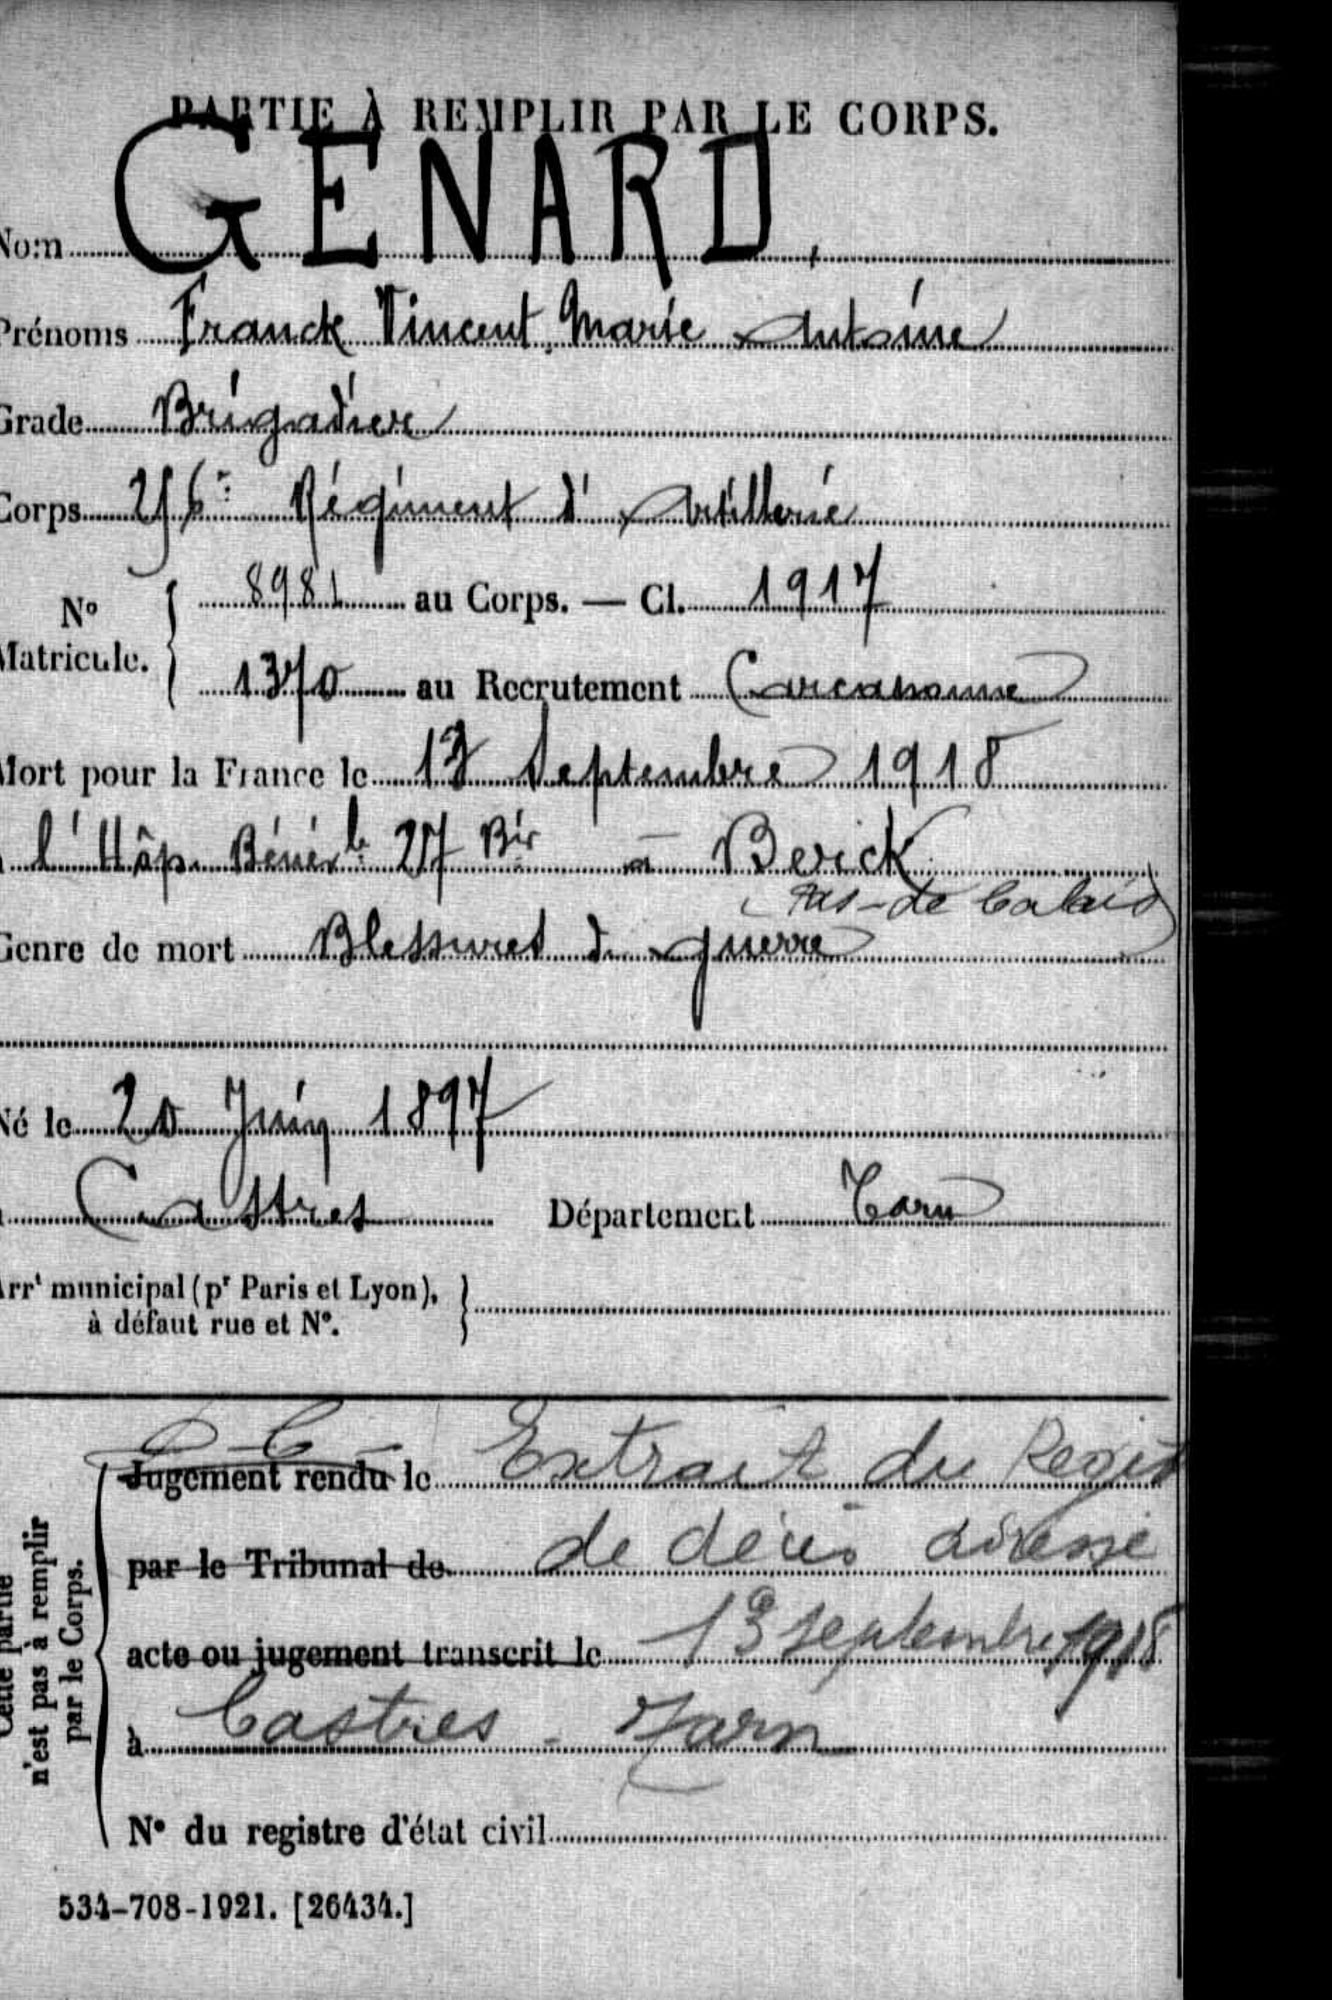 PARTIE À REMPLIR PAR LE CORPS.
Nom GENARD,
Prénoms Franck Vincent Marie Antoine
Grade Brigadier
Corps 256e Régiment d'Artillerie
N° Matricule. { 8981 au Corps. — Cl. 1917
1370 au Recrutement Carcassonne
Mort pour la France le 13 Septembre 1918
à l'Hôp. Bénév. 27 Bis à Berck
Pas-de-Calais
Genre de mort Blessures de guerre
Né le 20 Juin 1897
à Castres Département Tarn
Arrt municipal (pr Paris et Lyon), à défaut rue et N°.
Cette partie n'est pas à remplir par le Corps.
Jugement rendu le Extrait du Regist
par le Tribunal de de décès adressé
acte ou jugement transcrit le 13 septembre 1918
à Castres - Tarn
N° du registre d'état civil
534-708-1921. [26434.]